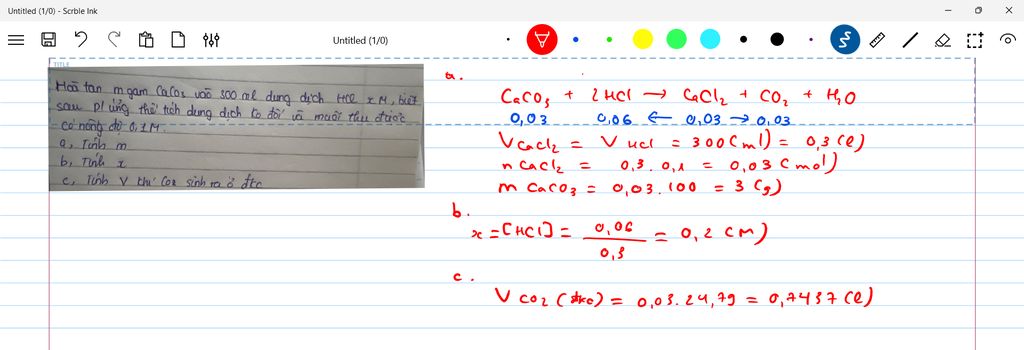 Untitled (1/0) - Scrble Ink
Untitled (1/0)
TITLE
Hoà tan m gam CaCO3 vào 300 ml dung dịch HCl x M, biết
sau p/ứng thể tích dung dịch ko đổi và muối thu được
có nồng độ 0,1M.
a, Tính m
b, Tính x
c, Tính V khí CO2 sinh ra ở đktc
a.
CaCO3 + 2HCl → CaCl2 + CO2 + H2O
0,03 0,06 ← 0,03 → 0,03
V CaCl2 = V HCl = 300(ml) = 0,3(l)
n CaCl2 = 0,3. 0,1 = 0,03(mol)
m CaCO3 = 0,03.100 = 3(g)
b.
x = [HCl] = 0,06 / 0,3 = 0,2 (M)
c.
V CO2 (đkc) = 0,03.24,79 = 0,7437(l)